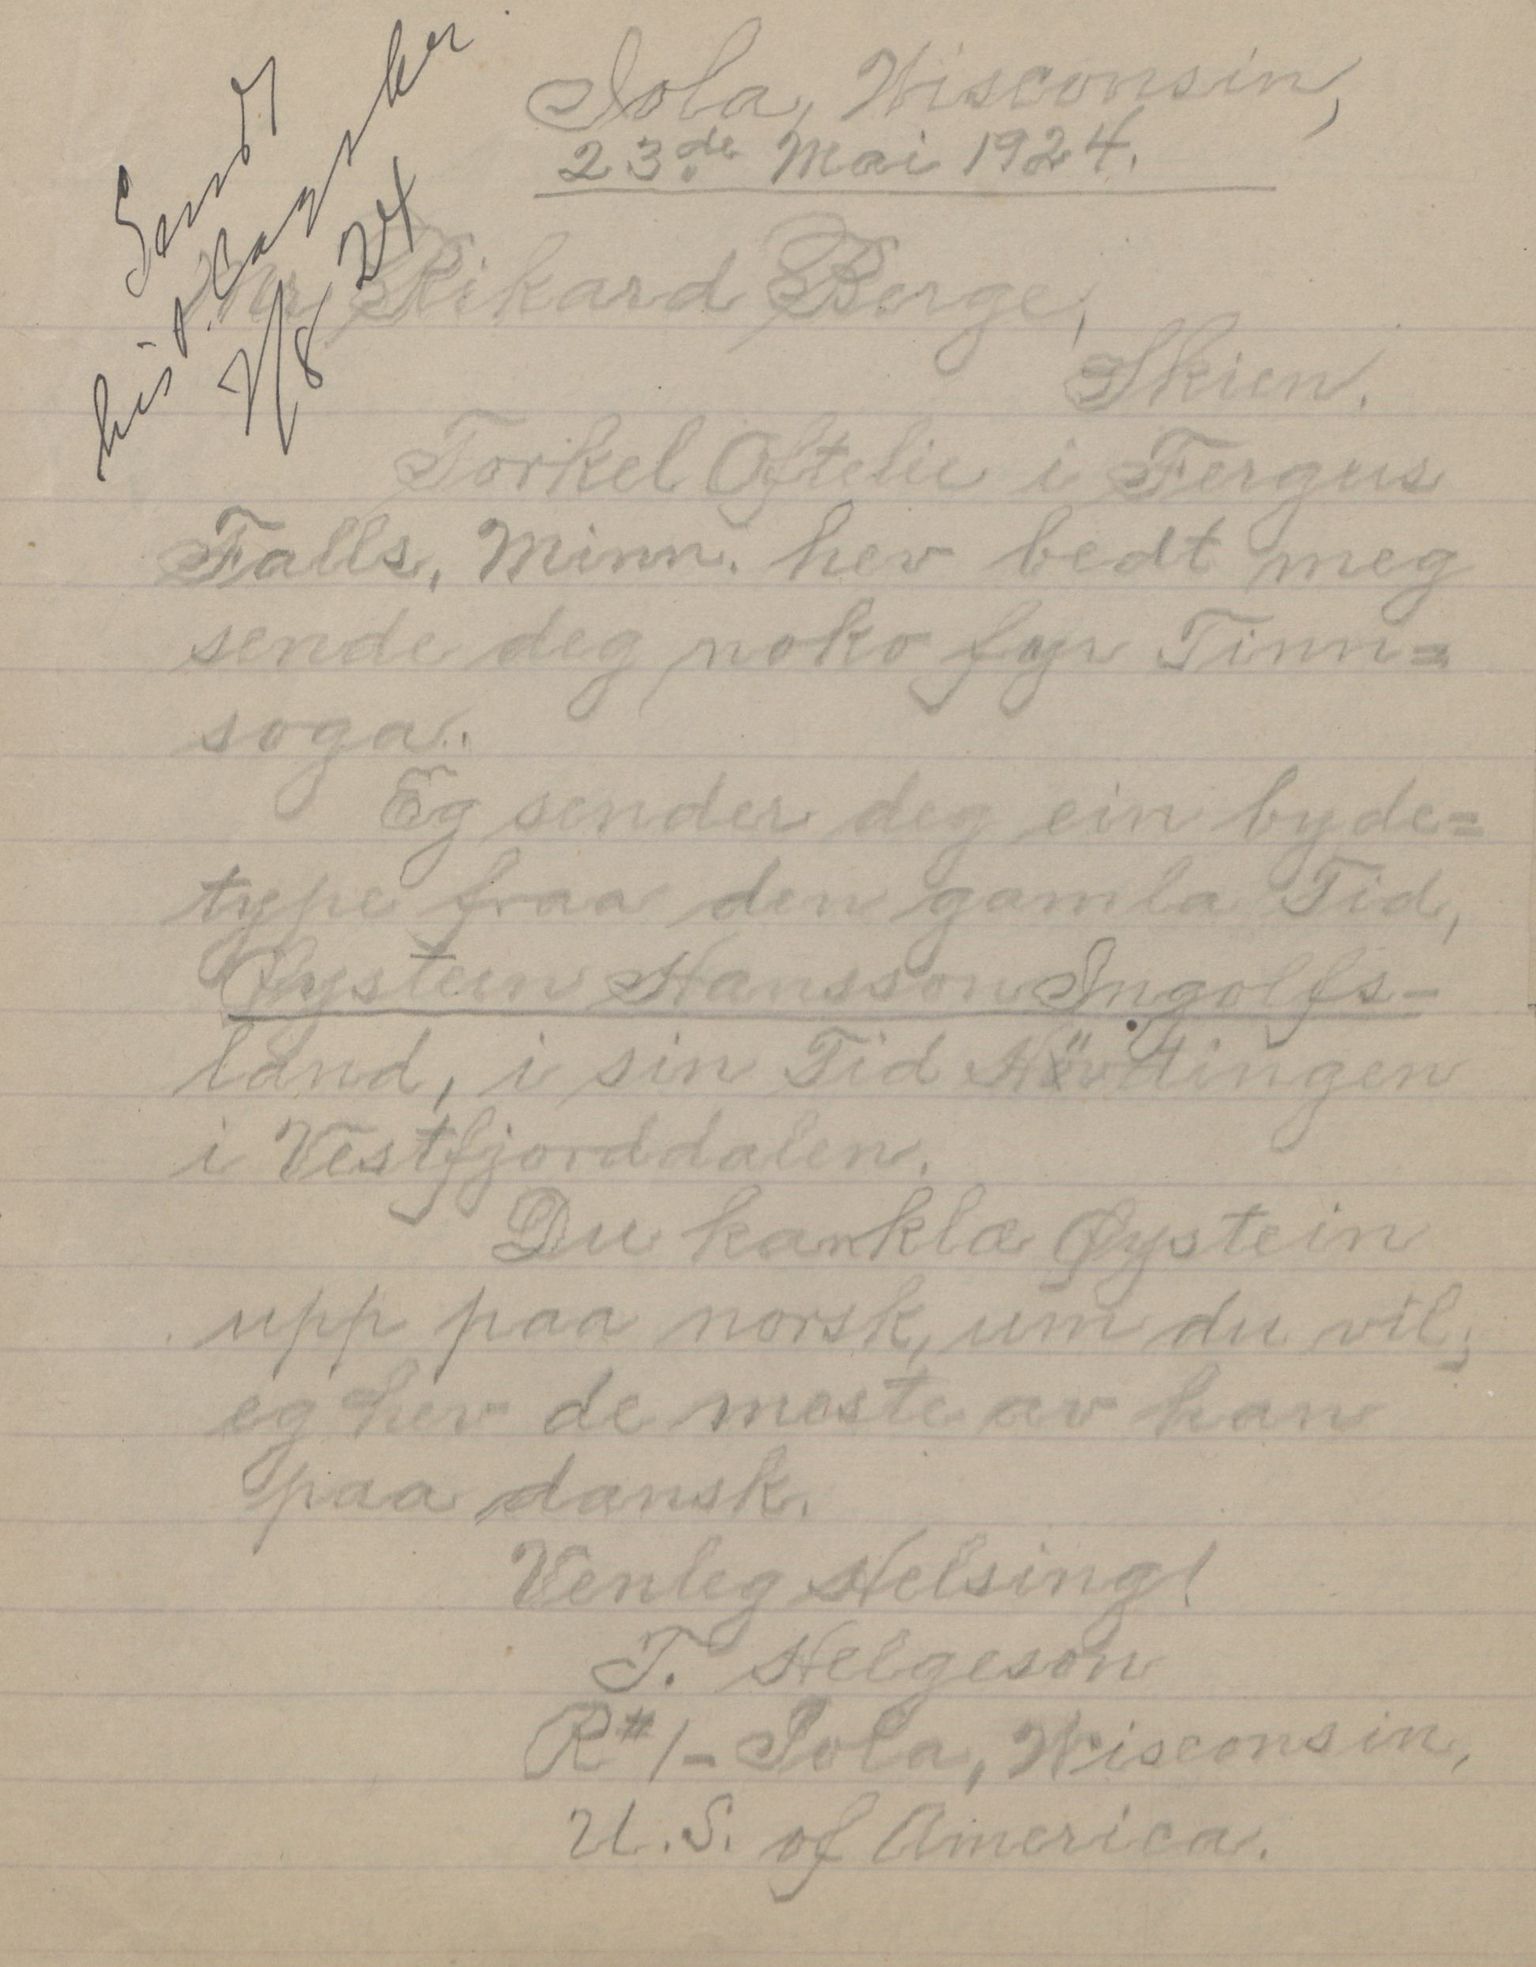 Sendt
hist. lagsker
7/8 24
Iola, Wisconsin,
23de Mai 1924.
Mr Rikard Berge,
Skien.
Torkel Oftelie i Fergus
Falls, Minn. hev bedt meg
sende deg noko fyr Tinn=
soga.
Eg sender deg ein byde=
type fraa den gamla Tid,
Øystein Hansson Ingolfs-
land, i sin Tid Hövdingen
i Vestfjorddalen.
Du kan klæ Øystein
upp paa norsk, um du vil;
eg hev de meste av han
paa dansk.
Venleg Helsing!
T. Helgeson
R#1- Iola, Wisconsin,
U.S. of America.